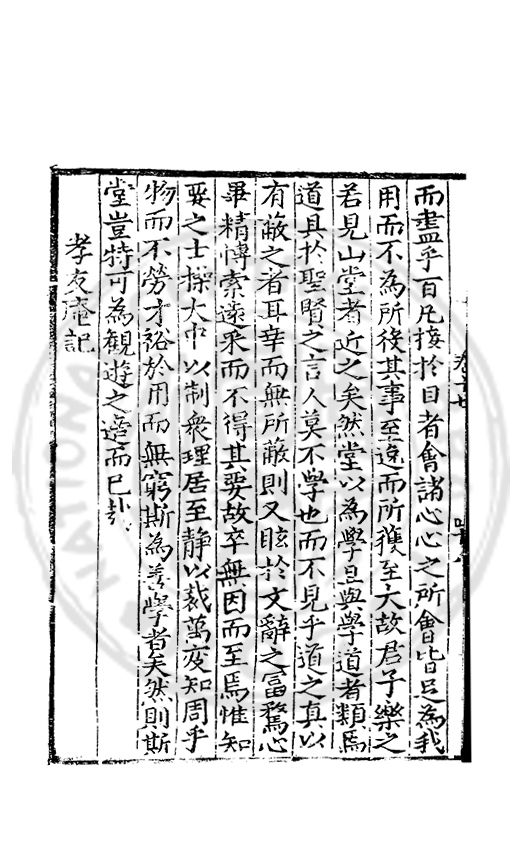 而盡乎百凡接於目者會諸心心之所會皆足為我
用而不為所役其事至逺而所獲至大故君子樂之
若見山堂者近之矣然堂以為學且與學道者類焉
道具於聖賢之言人莫不學也而不見乎道之真以
有蔽之者耳幸而無所蔽則又眩於文辭之富騖心
畢精博索逺采而不得其要故卒無因而至焉惟知
要之士操大中以制衆理居至静以裁萬变知周乎
物而不勞才裕於用而無窮斯為善學者矣然則斯
堂豈特可為觀遊之適而已哉
孝友庵記